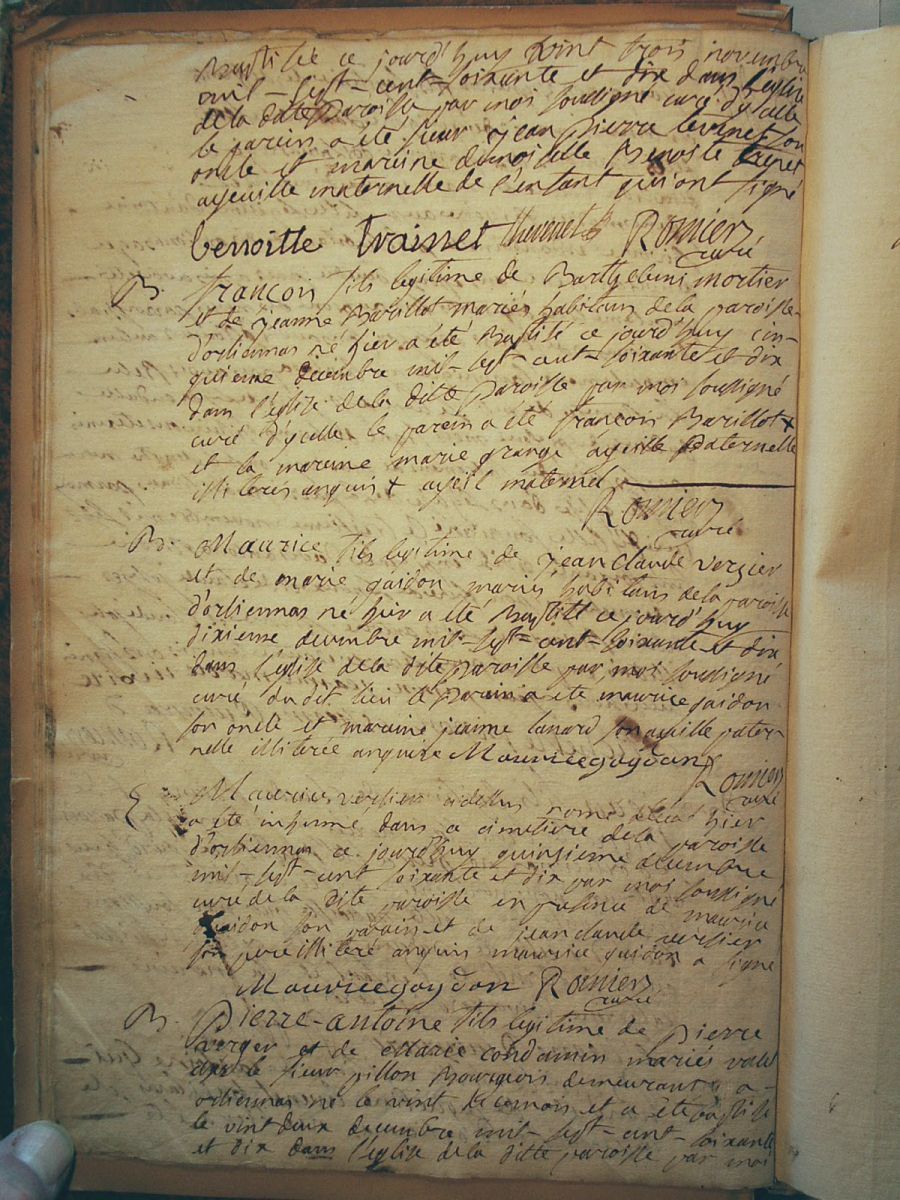 Baptisé ce jourd'huy vint trois novembre
mil-sept-cent-soixante et dix dans l'eglise
de la ditte paroisse par moi soussigné curé d'ycelle
le parein a été sieur jean pierre tevenet son
oncle et mareine demoiselle Benoite trainet
ayeuille maternelle de l'enfant qui ont signé
benoitte trainet thevenet Romier
curé
B. françois fils legitime de Barthelemi mortier
et de jeanne Barillot mariés habitans de la paroisse
d'orliennas né hier a été Baptisé ce jourd'huy cin-
quieme decembre mil-sept-cent-soixante et dix
dans l'eglise de la ditte paroisse par moi soussigné
curé d'ycelle le parein a été françois Barillot +
et la mareine marie grange ayeille paternelle
illiterés enquis + ayeil maternel
Romier
curé
B. Maurice fils legitime de jean claude verzier
et de marie gaidon mariés habitans de la paroisse
d'orliennas ne hier a été Baptisé ce jourd'huy
dixieme decembre mil-sept-cent-soixante et dix
dans l'eglise de la dite paroisse par moi soussigné
curé du dit lieu le parain a ete maurice gaidon
son oncle et maraine jeanne lanard son ayeille pater-
nelle illiterée enquise Mauricegaydon
Romier
curé
Maurice versier cidessus nomé décédé hier
a été inhumé dans ce cimetiere de la paroisse
d'orliennas ce jourd'huy quinsieme decembre
mil-sept-cent soixante et dix par moi soussigné
curé de la dite paroisse en presence de maurice
gaidon son parain et de jean claude versier
son pere illiteré enquis maurice gaidon a signé
Mauricegaydon Romier
curé
B. Pierre-antoine fils legitime de pierre
verger et de Marie condamin mariés valet
chés le sieur pillon Bourgeois demeurant a
orliennas né le vint du mois et a été baptisé
le vint deux decembre mil-sept-cent-soixante
et dix dans l'eglise de la ditte paroisse par moi